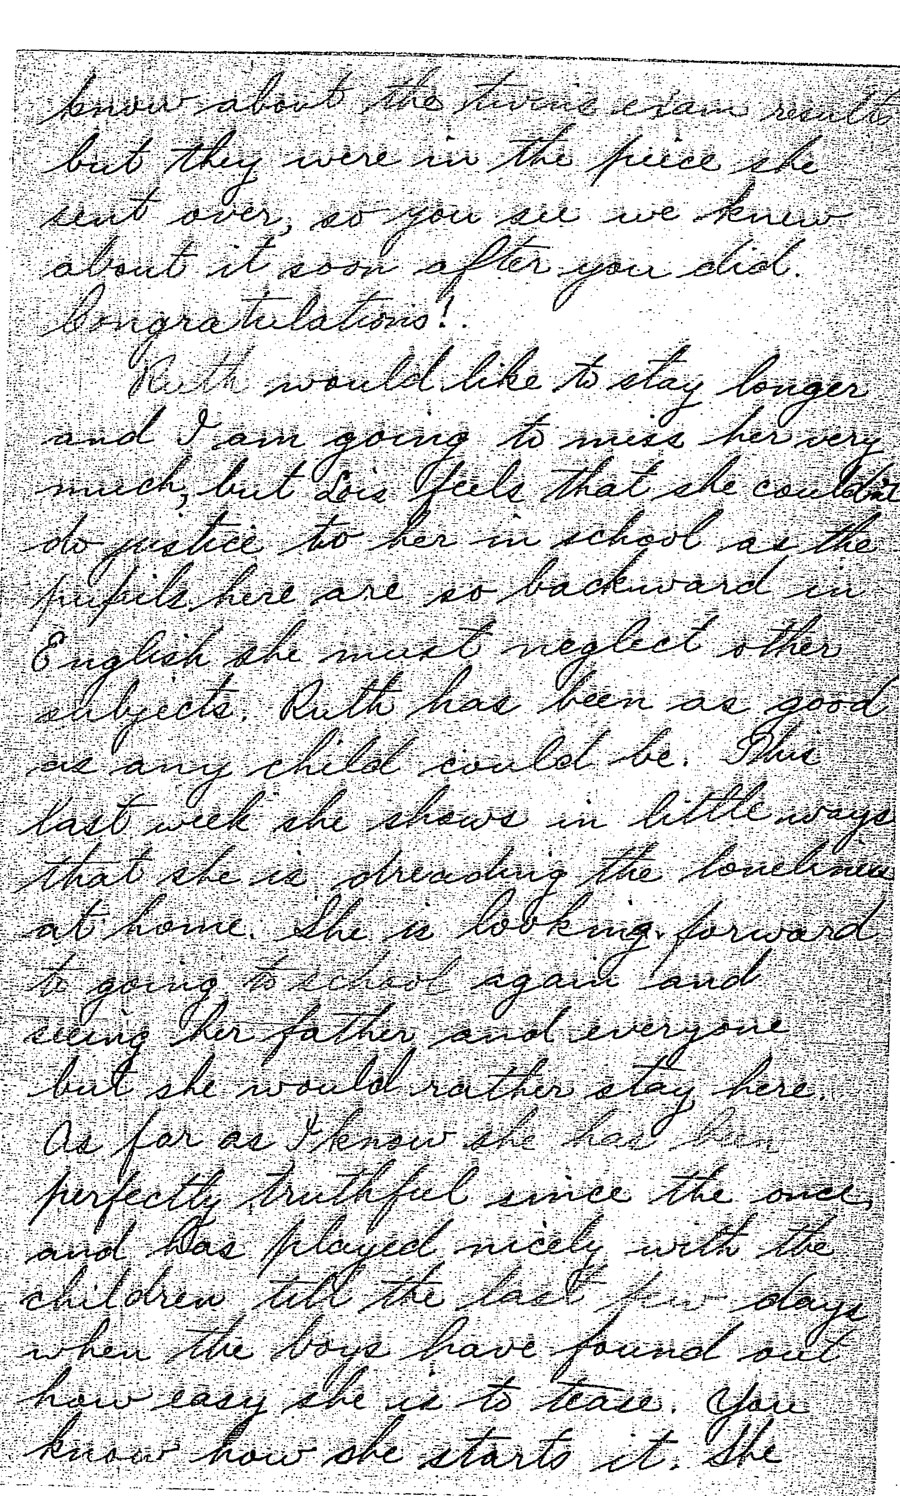 know about the twins exam results
but they were in the piece she
sent over, so you see we knew
about it soon after you did.
Congratulations!
Ruth would like to stay longer
and I am going to miss her very
much, but Lois feels that she couldn't
do justice to her in school as the
pupils here are so backward in
English she must neglect other
subjects. Ruth has been as good
as any child could be. This
last week she shows in little ways
that she is dreading the loneliness
at home. She is looking forward
to going to school again and
seeing her father and everyone
but she would rather stay here.
As far as I know she has been
perfectly truthful since the once,
and has played nicely with the
children till the last few days
when the boys have found out
how easy she is to tease. You
know how she starts it. She